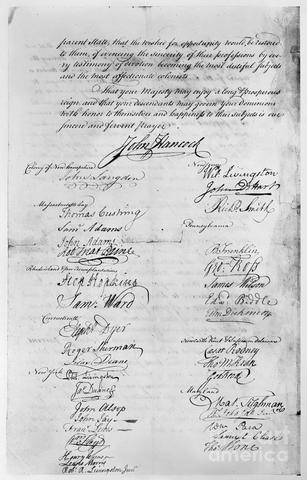 parent State, that the wished for opportunity would be restored
to them, of evincing the sincerity of their professions by eve-
ry testimony of devotion becoming the most dutiful subjects
and the most affectionate colonists.
That your Majesty may enjoy a long & prosperous
reign and that your descendants may govern your Dominions
with honor to themselves and happiness to their subjects is our
sincere and fervent prayer.
John Hancock
Colony of New Hampshire
John Langdon
Massachusetts Bay
Thomas Cushing
Saml Adams
John Adams
Robt Treat Paine
Step Hopkins
Sam: Ward
Connecticut
Elipht Dyer
Roger Sherman
Silas Deane
New York
Phil. Livingston
Jas Duane
John Alsop
John Jay
Fran. Lewis
Wm Floyd
Henry Wisner
Lewis Morris
Robt R. Livingston Junr
New Jersey
Wil: Livingston
John D. Hart
Richd Smith
Pennsylvania
B Franklin
Geo: Ross
James Wilson
Edwd Biddle
John Dickinson
Caesar Rodney
Tho M:Kean
Geo Read
Maryland
Mat. Tilghman
Wm Paca
Samuel Chase
Tho Stone
fine art
america